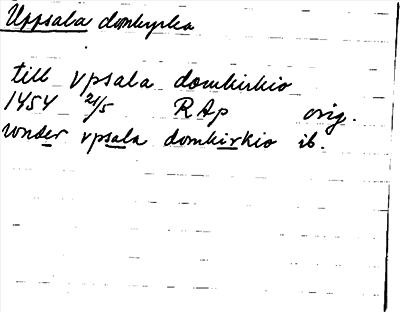 Uppsala domkyrka
till vpsala domkirkio
1454 21/5 RAp orig.
vnder vpsala domkirkio ib.